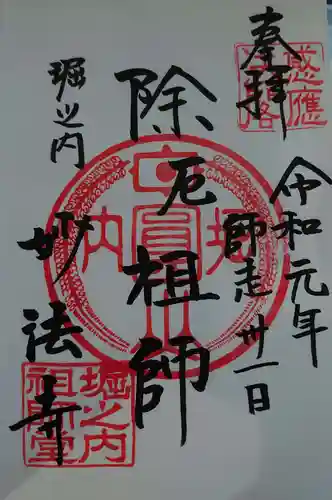 奉拝
令和元年
師走卅一日
除厄祖師
堀之内
妙法寺
感應
堀之内
祖師堂